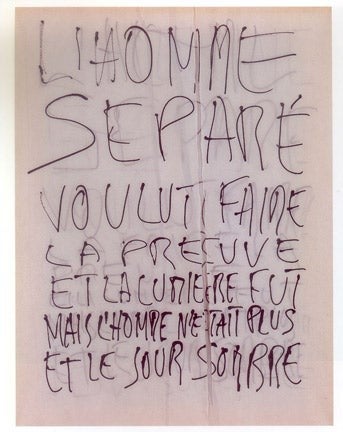 L'HOMME
SÉPARÉ
VOULUT FAIRE
LA PREUVE
ET LA LUMIERE FUT
MAIS L'HOMME N'ETAIT PLUS
ET LE JOUR SOMBRE